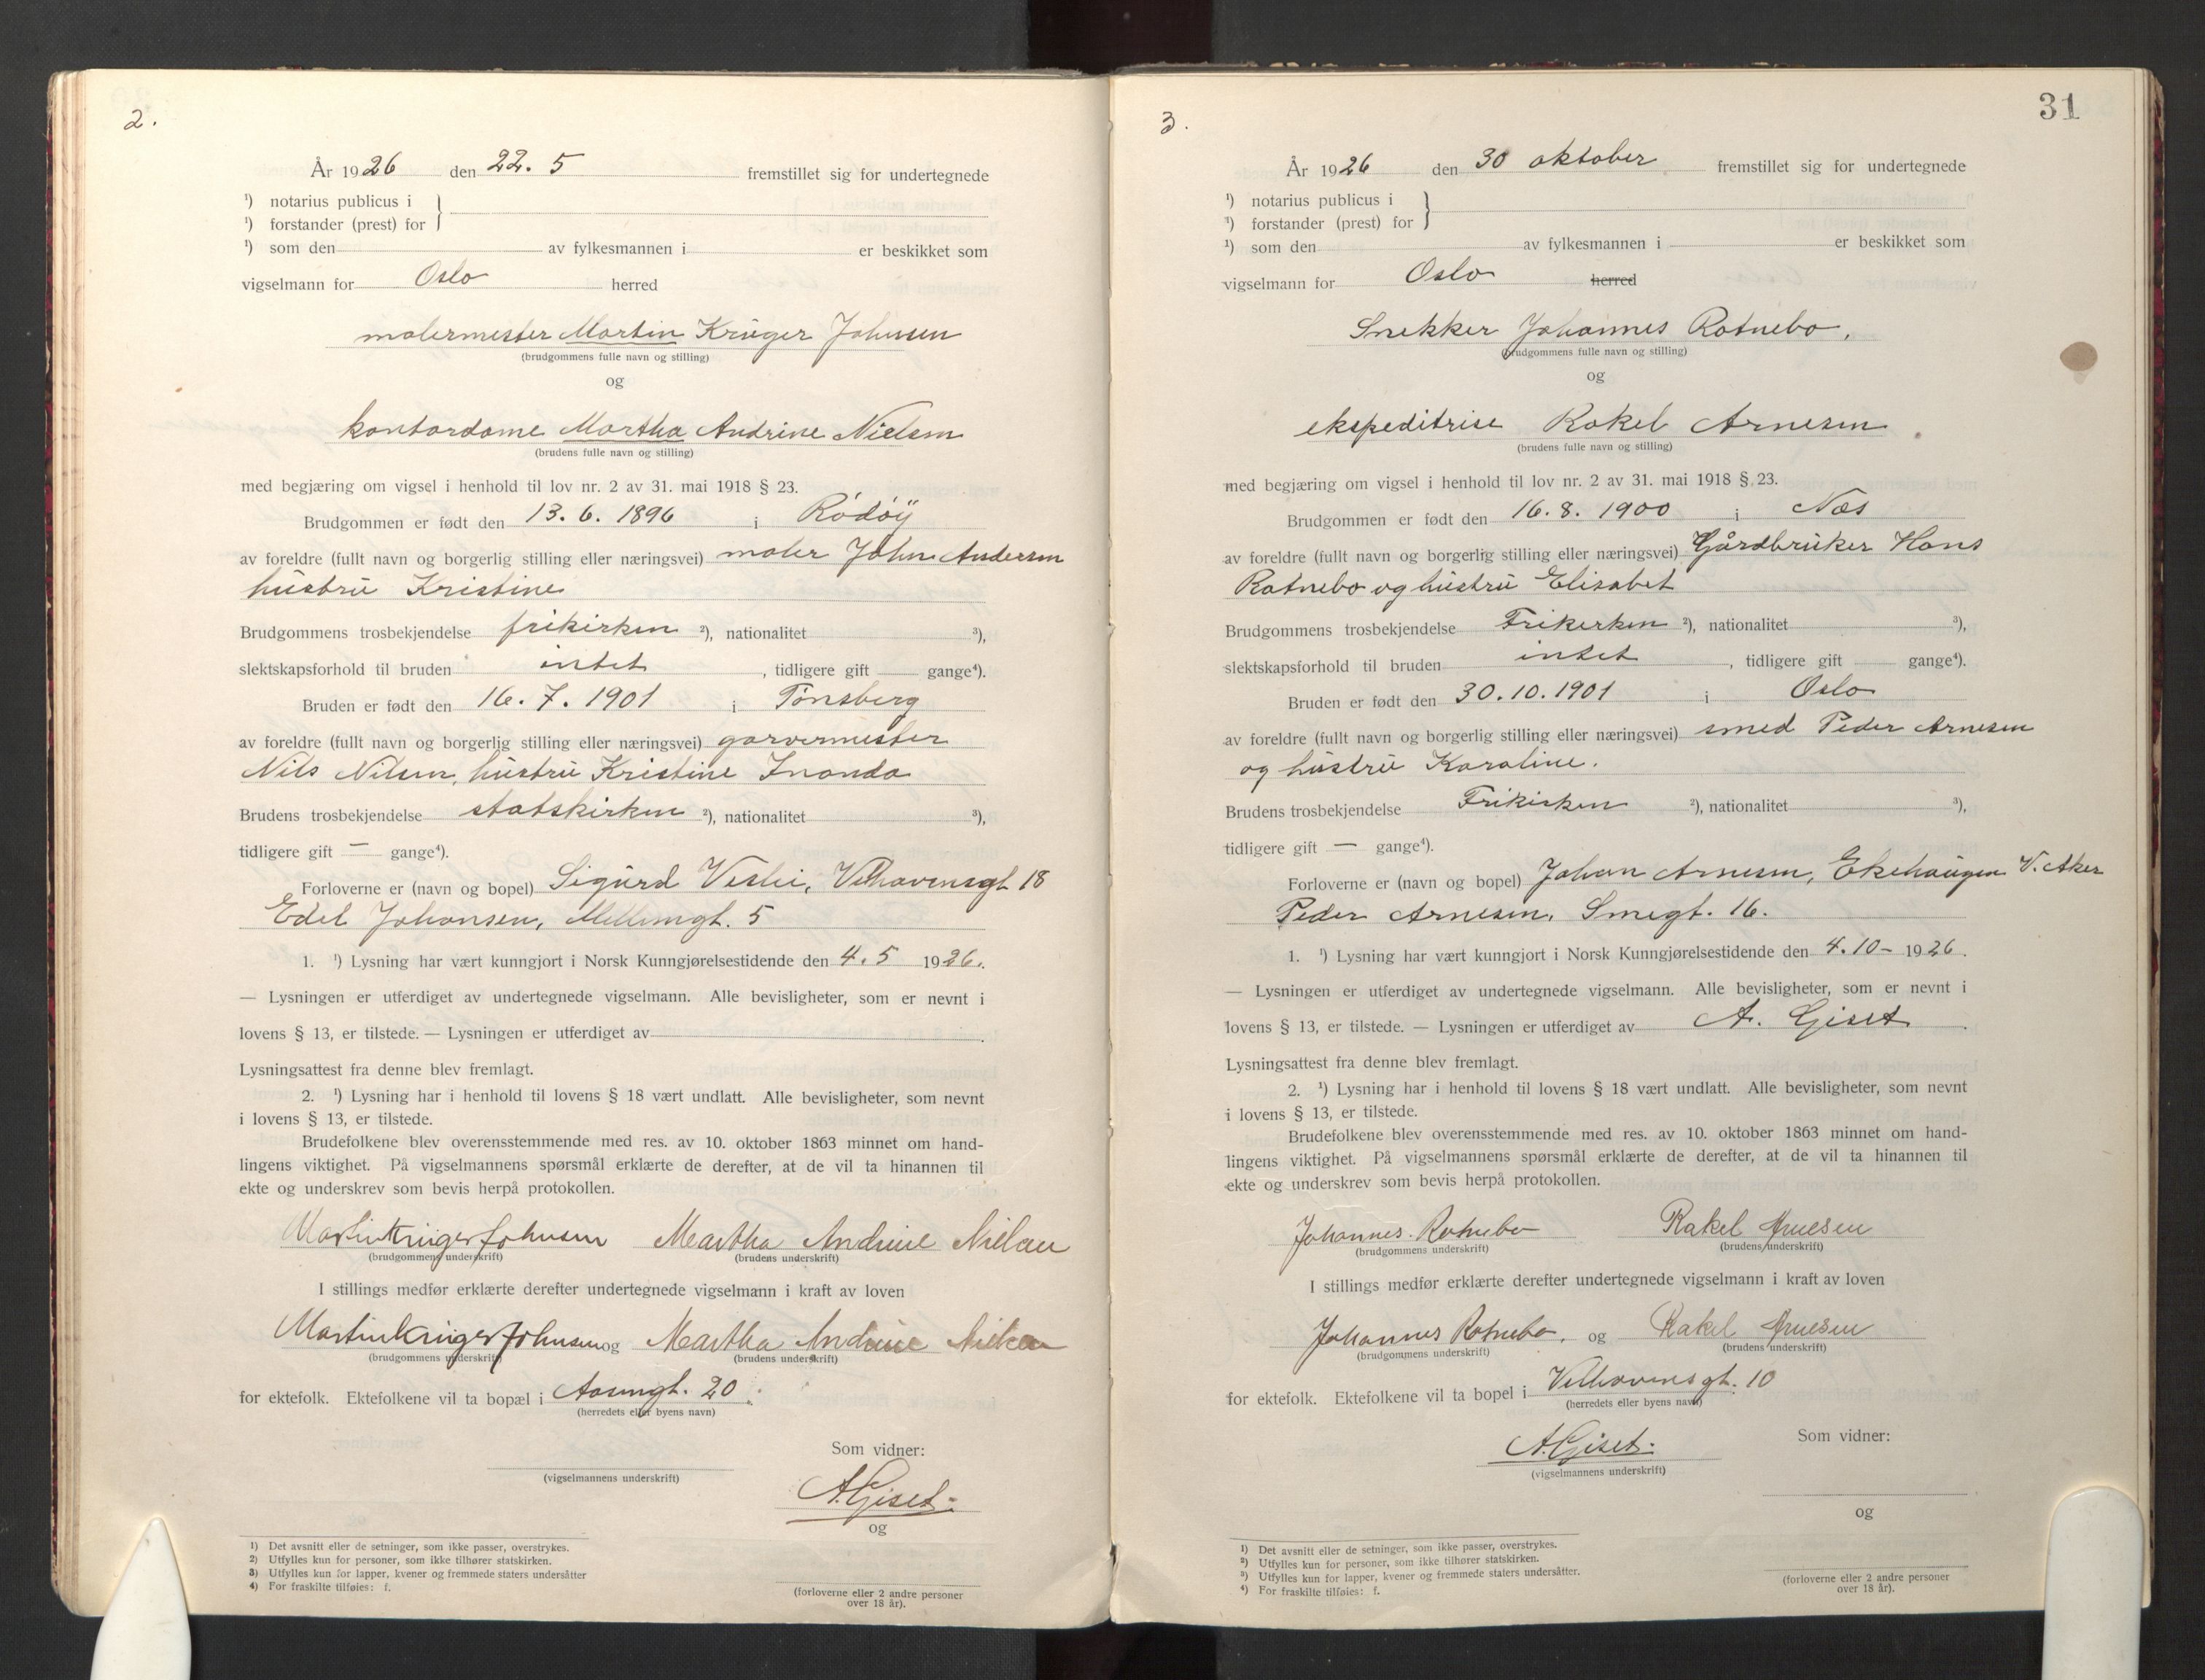 2.
År 1926 den 22. 5 fremstillet sig for undertegnede
¹) notarius publicus i
¹) forstander (prest) for
¹) som den av fylkesmannen i er beskikket som
vigselmann for Oslo herred
malermester Martin Krüger Johnsen
(brudgommens fulle navn og stilling)
og
kontordame Martha Andrine Nielsen
(brudens fulle navn og stilling)
med begjæring om vigsel i henhold til lov nr. 2 av 31. mai 1918 § 23.
Brudgommen er født den 13. 6. 1896 i Rödöy
av foreldre (fullt navn og borgerlig stilling eller næringsvei) maler John Andersen
hustru Kristine
Brudgommens trosbekjendelse frikirken ²), nationalitet ³),
slektskapsforhold til bruden intet, tidligere gift gange⁴).
Bruden er født den 16. 7. 1901 i Tönsberg
av foreldre (fullt navn og borgerlig stilling eller næringsvei) garvermester
Nils Nilsen, hustru Kristine
Brudens trosbekjendelse statskirken ²), nationalitet ³),
tidligere gift — gange⁴).
Forloverne er (navn og bopel) Sigurd 18
Edel Johansen, 5
1. ¹) Lysning har vært kunngjort i Norsk Kunngjørelsestidende den 4. 5 1926.
— Lysningen er utferdiget av undertegnede vigselmann. Alle bevisligheter, som er nevnt i
lovens § 13, er tilstede. — Lysningen er utferdiget av .
Lysningsattest fra denne blev fremlagt.
2. ¹) Lysning har i henhold til lovens § 18 vært undlatt. Alle bevisligheter, som nevnt
i lovens § 13, er tilstede.
Brudefolkene blev overensstemmende med res. av 10. oktober 1863 minnet om hand-
lingens viktighet. På vigselmannens spørsmål erklærte de derefter, at de vil ta hinannen til
ekte og underskrev som bevis herpå protokollen.
Martin Krüger Johnsen Martha Andrine Nielsen
(brudgommens underskrift) (brudens underskrift)
I stillings medfør erklærte derefter undertegnede vigselmann i kraft av loven
Martin Krüger Johnsen og Martha Andrine Nielsen
(brudgommens underskrift) (brudens underskrift)
for ektefolk. Ektefolkene vil ta bopæl i 20.
(herredets eller byens navn)
Som vidner:
(vigselmannens underskrift)
A. Giset.
og
1) Det avsnitt eller de setninger, som ikke passer, overstrykes.
2) Utfylles kun for personer, som ikke tilhører statskirken.
3) Utfylles kun for lapper, kvener og fremmede staters undersåtter
4) For fraskilte tilføies: f.
(forloverne eller 2 andre personer
over 18 år).
31
3.
År 1926 den 30 oktober fremstillet sig for undertegnede
¹) notarius publicus i
¹) forstander (prest) for
¹) som den av fylkesmannen i er beskikket som
vigselmann for Oslo herred
Snekker Johannes Rotnebo.
(brudgommens fulle navn og stilling)
og
ekspeditrise Rakel Arnesen
(brudens fulle navn og stilling)
med begjæring om vigsel i henhold til lov nr. 2 av 31. mai 1918 § 23.
Brudgommen er født den 16. 8. 1900 i Næs
av foreldre (fullt navn og borgerlig stilling eller næringsvei) Gårdbruker Hans
Rotnebo og hustru Elisabet
Brudgommens trosbekjendelse Frikerken ²), nationalitet ³),
slektskapsforhold til bruden intet, tidligere gift gange⁴).
Bruden er født den 30. 10. 1901 i Oslo
av foreldre (fullt navn og borgerlig stilling eller næringsvei) smed Peder Arnesen
og hustru Karoline.
Brudens trosbekjendelse Frikirken ²), nationalitet ³),
tidligere gift — gange⁴).
Forloverne er (navn og bopel) Johan Arnesen, Ekehaugen V. Aker
Peder Arnesen, Smegt. 16.
1. ¹) Lysning har vært kunngjort i Norsk Kunngjørelsestidende den 4. 10 – 1926.
— Lysningen er utferdiget av undertegnede vigselmann. Alle bevisligheter, som er nevnt i
lovens § 13, er tilstede. — Lysningen er utferdiget av A. Giset.
Lysningsattest fra denne blev fremlagt.
2. ¹) Lysning har i henhold til lovens § 18 vært undlatt. Alle bevisligheter, som nevnt
i lovens § 13, er tilstede.
Brudefolkene blev overensstemmende med res. av 10. oktober 1863 minnet om hand-
lingens viktighet. På vigselmannens spørsmål erklærte de derefter, at de vil ta hinannen til
ekte og underskrev som bevis herpå protokollen.
Johannes Rotnebo Rakel Arnesen
(brudgommens underskrift) (brudens underskrift)
I stillings medfør erklærte derefter undertegnede vigselmann i kraft av loven
Johannes Rotnebo, og Rakel Arnesen
(brudgommens underskrift) (brudens underskrift)
for ektefolk. Ektefolkene vil ta bopel i Velhavensgt. 10
(herredets eller byens navn)
A. Giset.
Som vidner:
(vigselmannens underskrift)
og
1) Det avsnitt eller de setninger, som ikke passer, overstrykes.
2) Utfylles kun for personer, som ikke tilhører statskirken.
3) Utfylles kun for lapper, kvener og fremmede staters undersåtter.
4) For fraskilte tilføies: f.
(forloverne eller 2 andre personer
over 18 år).